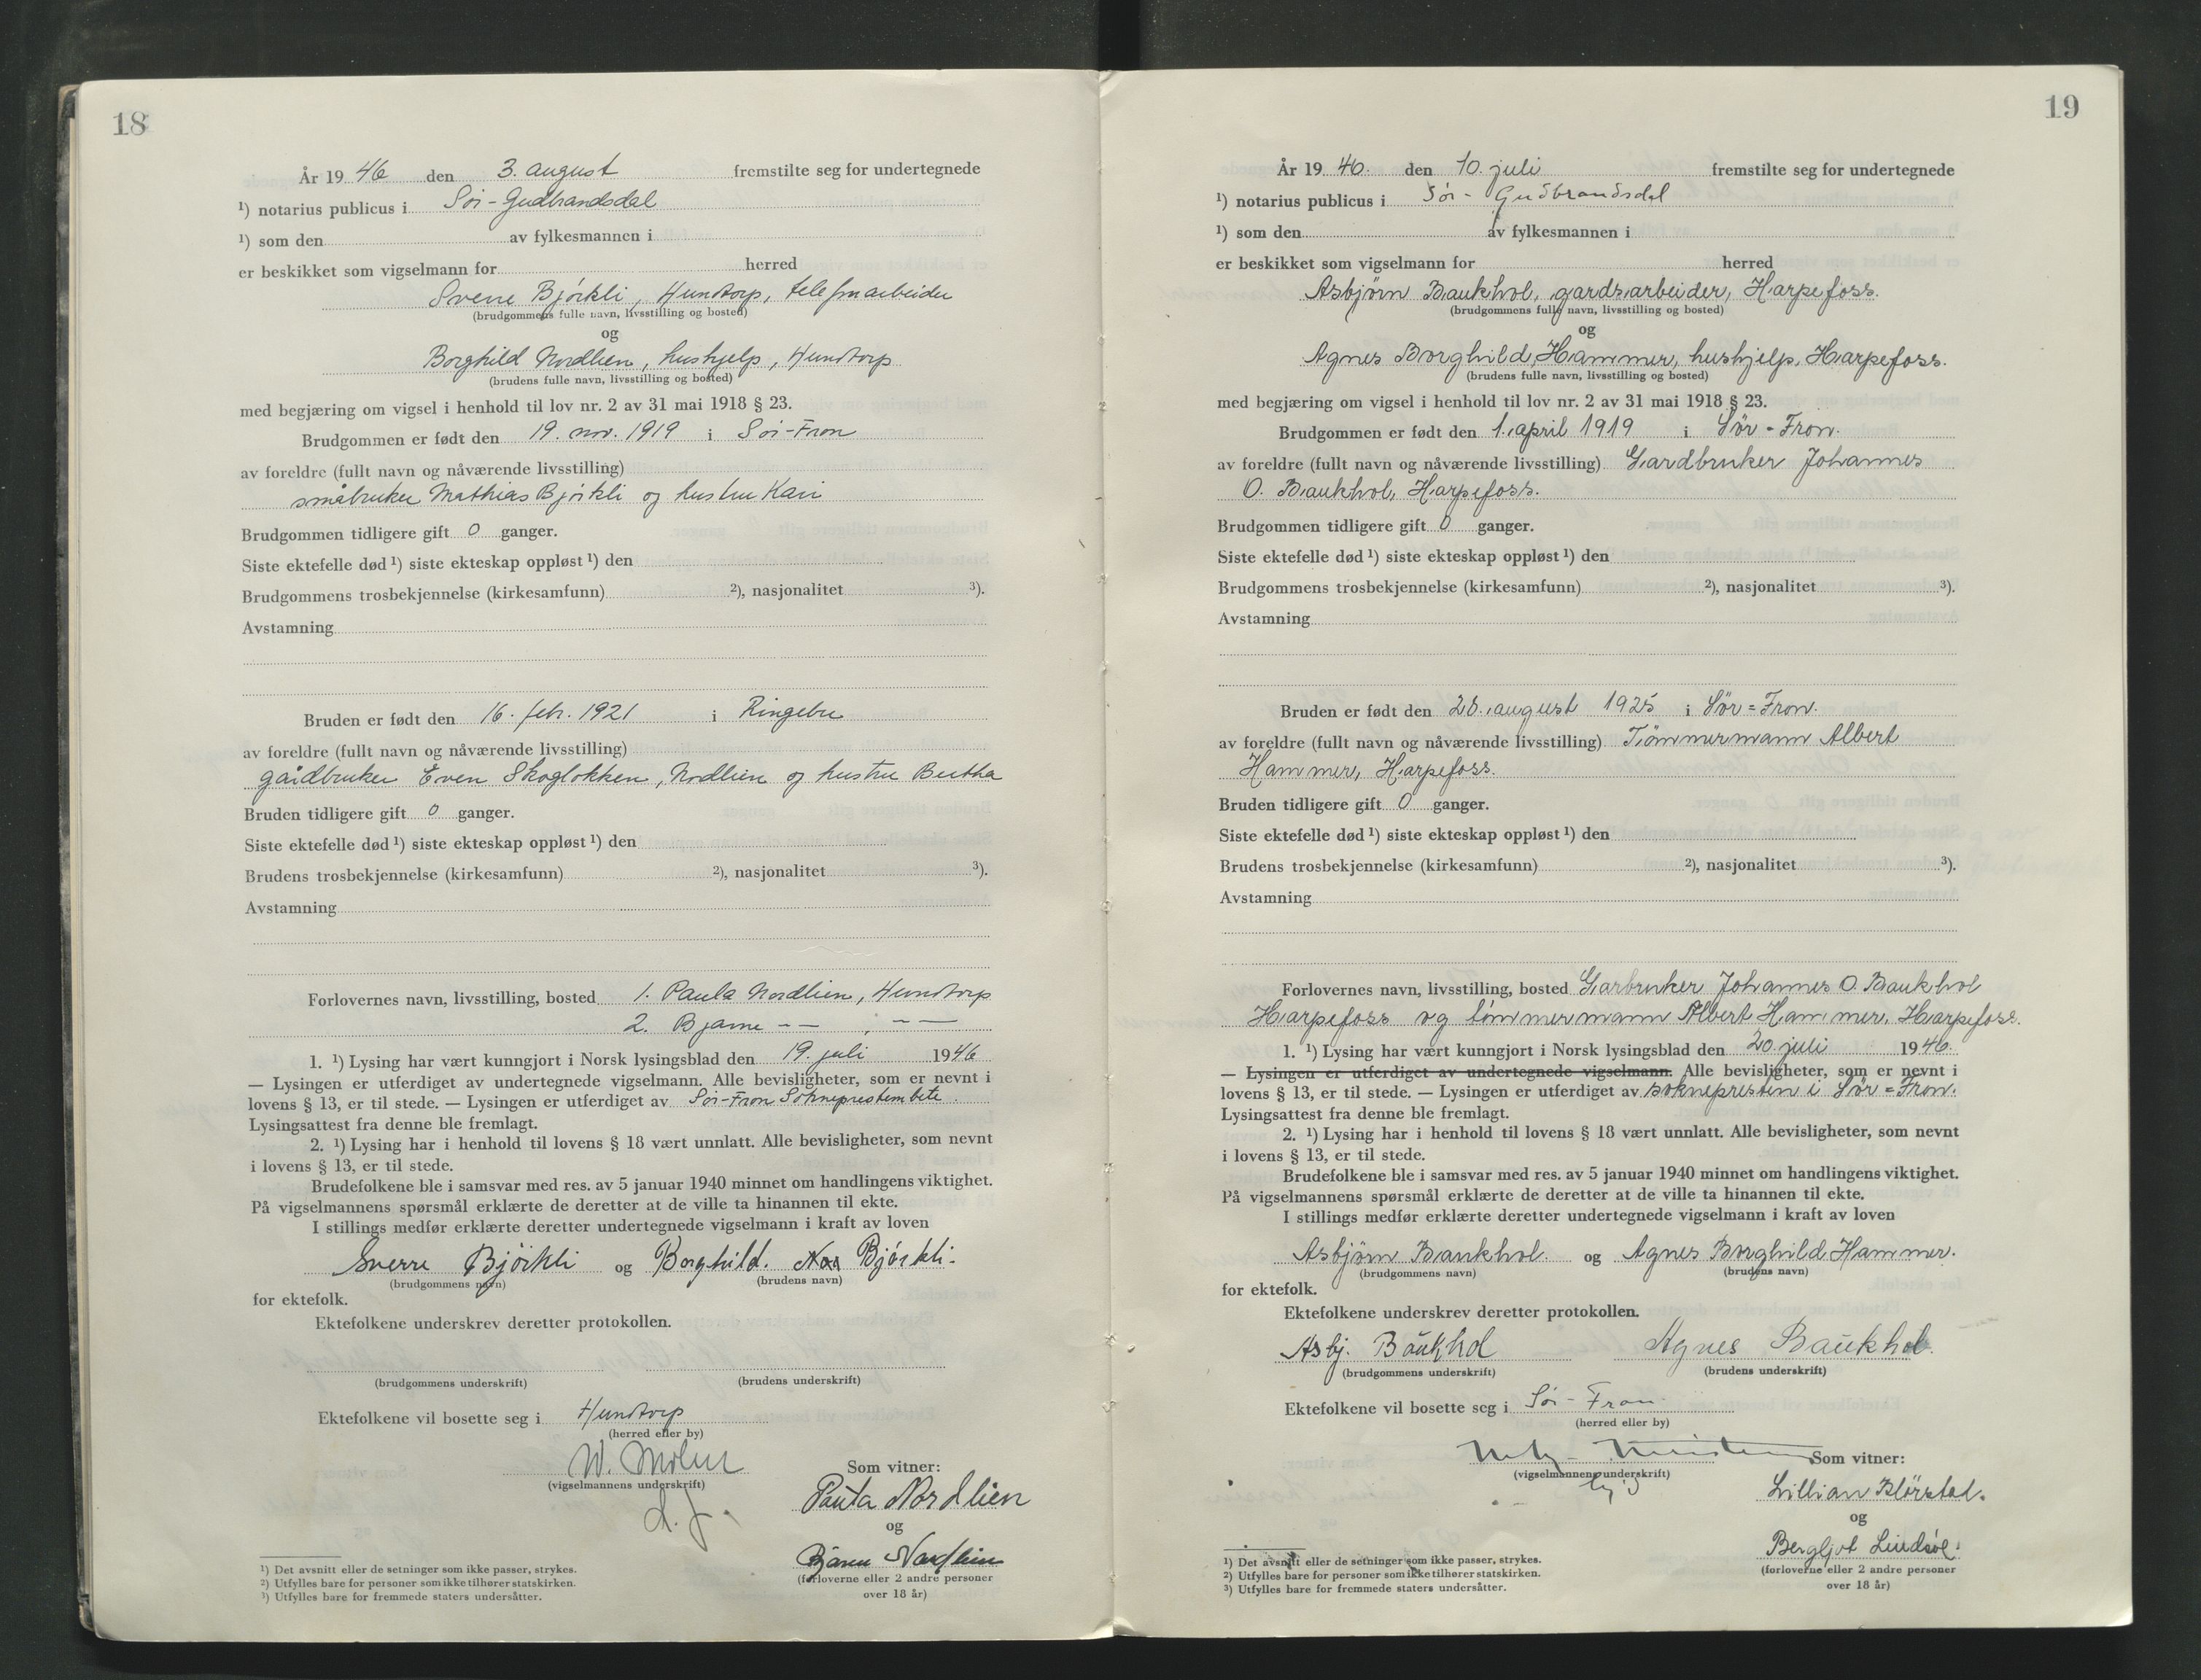 18
År 19 46 den 3. august fremstilte seg for undertegnede
¹) notarius publicus i Sør-Gudbrandsdal
¹) som den av fylkesmannen i
er beskikket som vigselmann for herred
Sverre Bjørkli, Hundorp, telefonarbeider
(brudgommens fulle navn, livsstilling og bosted)
og
Borghild Nordlien, hushjelp, Hundorp
(brudens fulle navn, livsstilling og bosted)
med begjæring om vigsel i henhold til lov nr. 2 av 31 mai 1918 § 23.
Brudgommen er født den 19. nov. 1919 i Sør-Fron
av foreldre (fullt navn og nåværende livsstilling)
småbruker Mathias Bjørkli og hustru Kari
Brudgommen tidligere gift 0 ganger.
Siste ektefelle død ¹) siste ekteskap oppløst ¹) den
Brudgommens trosbekjennelse (kirkesamfunn) ²), nasjonalitet ³).
Avstamning
Bruden er født den 16. febr. 1921 i Ringebu
av foreldre (fullt navn og nåværende livsstilling)
gårdbruker Even Skoglokken, Nordlien og hustru Bertha
Bruden tidligere gift 0 ganger.
Siste ektefelle død ¹) siste ekteskap oppløst ¹) den
Brudens trosbekjennelse (kirkesamfunn) ²), nasjonalitet ³).
Avstamning
Forlovernes navn, livsstilling, bosted 1. Paula Nordlien, Hundorp
2. Bjarne -- , --
1. ¹) Lysing har vært kunngjort i Norsk lysingsblad den 19. juli 1946
— Lysingen er utferdiget av undertegnede vigselmann. Alle bevisligheter, som er nevnt i
lovens § 13, er til stede. — Lysingen er utferdiget av Sør-Fron Sokneprestembete.
Lysingsattest fra denne ble fremlagt.
2. ¹) Lysing har i henhold til lovens § 18 vært unnlatt. Alle bevisligheter, som nevnt
i lovens § 13, er til stede.
Brudefolkene ble i samsvar med res. av 5 januar 1940 minnet om handlingens viktighet.
På vigselmannens spørsmål erklærte de deretter at de ville ta hinannen til ekte.
I stillings medfør erklærte deretter undertegnede vigselmann i kraft av loven
Sverre Bjørkli og Borghild. Nor Bjørkli.
(brudgommens navn) (brudens navn)
for ektefolk.
Ektefolkene underskrev deretter protokollen.
(brudgommens underskrift) (brudens underskrift)
Ektefolkene vil bosette seg i Hundorp
(herred eller by)
(vigselmannens underskrift)
Som vitner:
Paula Nordlien
og
Bjarne Nordlien
(forloverne eller 2 andre personer
over 18 år)
¹) Det avsnitt eller de setninger som ikke passer, strykes.
²) Utfylles bare for personer som ikke tilhører statskirken.
³) Utfylles bare for fremmede staters undersåtter.
19
År 19 46. den 10. juli fremstilte seg for undertegnede
¹) notarius publicus i Sør-Gudbrandsdal
¹) som den av fylkesmannen i
er beskikket som vigselmann for herred
Asbjørn Baukhol, gardsarbeider, Harpefoss.
(brudgommens fulle navn, livsstilling og bosted)
og
Agnes Borghild Hammer, hushjelp, Harpefoss.
(brudens fulle navn, livsstilling og bosted)
med begjæring om vigsel i henhold til lov nr. 2 av 31 mai 1918 § 23.
Brudgommen er født den 1. april 1919 i Sør-Fron.
av foreldre (fullt navn og nåværende livsstilling) Gardbruker Johannes
O. Baukhol, Harpefoss.
Brudgommen tidligere gift 0 ganger.
Siste ektefelle død ¹) siste ekteskap oppløst ¹) den
Brudgommens trosbekjennelse (kirkesamfunn) ²), nasjonalitet ³).
Avstamning
Bruden er født den 28. august 1925 i Sør=Fron.
av foreldre (fullt navn og nåværende livsstilling) Tømmermann Albert
Hammer, Harpefoss.
Bruden tidligere gift 0 ganger.
Siste ektefelle død ¹) siste ekteskap oppløst ¹) den
Brudens trosbekjennelse (kirkesamfunn) ²), nasjonalitet ³).
Avstamning
Forlovernes navn, livsstilling, bosted Garbruker Johannes O. Baukhol
Harpefoss og tømmermann Albert Hammer, Harpefoss.
1. ¹) Lysing har vært kunngjort i Norsk lysingsblad den 20. juli 1946.
— Lysingen er utferdiget av undertegnede vigselmann. Alle bevisligheter, som er nevnt i
lovens § 13, er til stede. — Lysingen er utferdiget av soknepresten i Sør=Fron.
Lysingsattest fra denne ble fremlagt.
2. ¹) Lysing har i henhold til lovens § 18 vært unnlatt. Alle bevisligheter, som nevnt
i lovens § 13, er til stede.
Brudefolkene ble i samsvar med res. av 5 januar 1940 minnet om handlingens viktighet.
På vigselmannens spørsmål erklærte de deretter at de ville ta hinannen til ekte.
I stillings medfør erklærte deretter undertegnede vigselmann i kraft av loven
Asbjørn Baukhol. og Agnes Borghild Hammer.
(brudgommens navn) (brudens navn)
for ektefolk.
Ektefolkene underskrev deretter protokollen.
Asbj. Baukhol Agnes Baukhol.
(brudgommens underskrift) (brudens underskrift)
Ektefolkene vil bosette seg i Sør-Fron
(herred eller by)
(vigselmannens underskrift)
Som vitner:
Lillian
og
Bergljot
(forloverne eller 2 andre personer
over 18 år)
¹) Det avsnitt eller de setninger som ikke passer, strykes.
²) Utfylles bare for personer som ikke tilhører statskirken.
³) Utfylles bare for fremmede staters undersåtter.